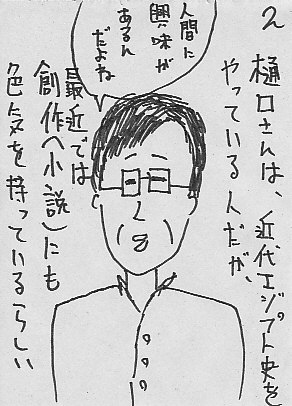 2
樋口さんは、近代エジプト史を
やっている人だが、
人間に
興味が
あるん
だよね
最近では
創作（小説）にも
色気を持っている（らしい